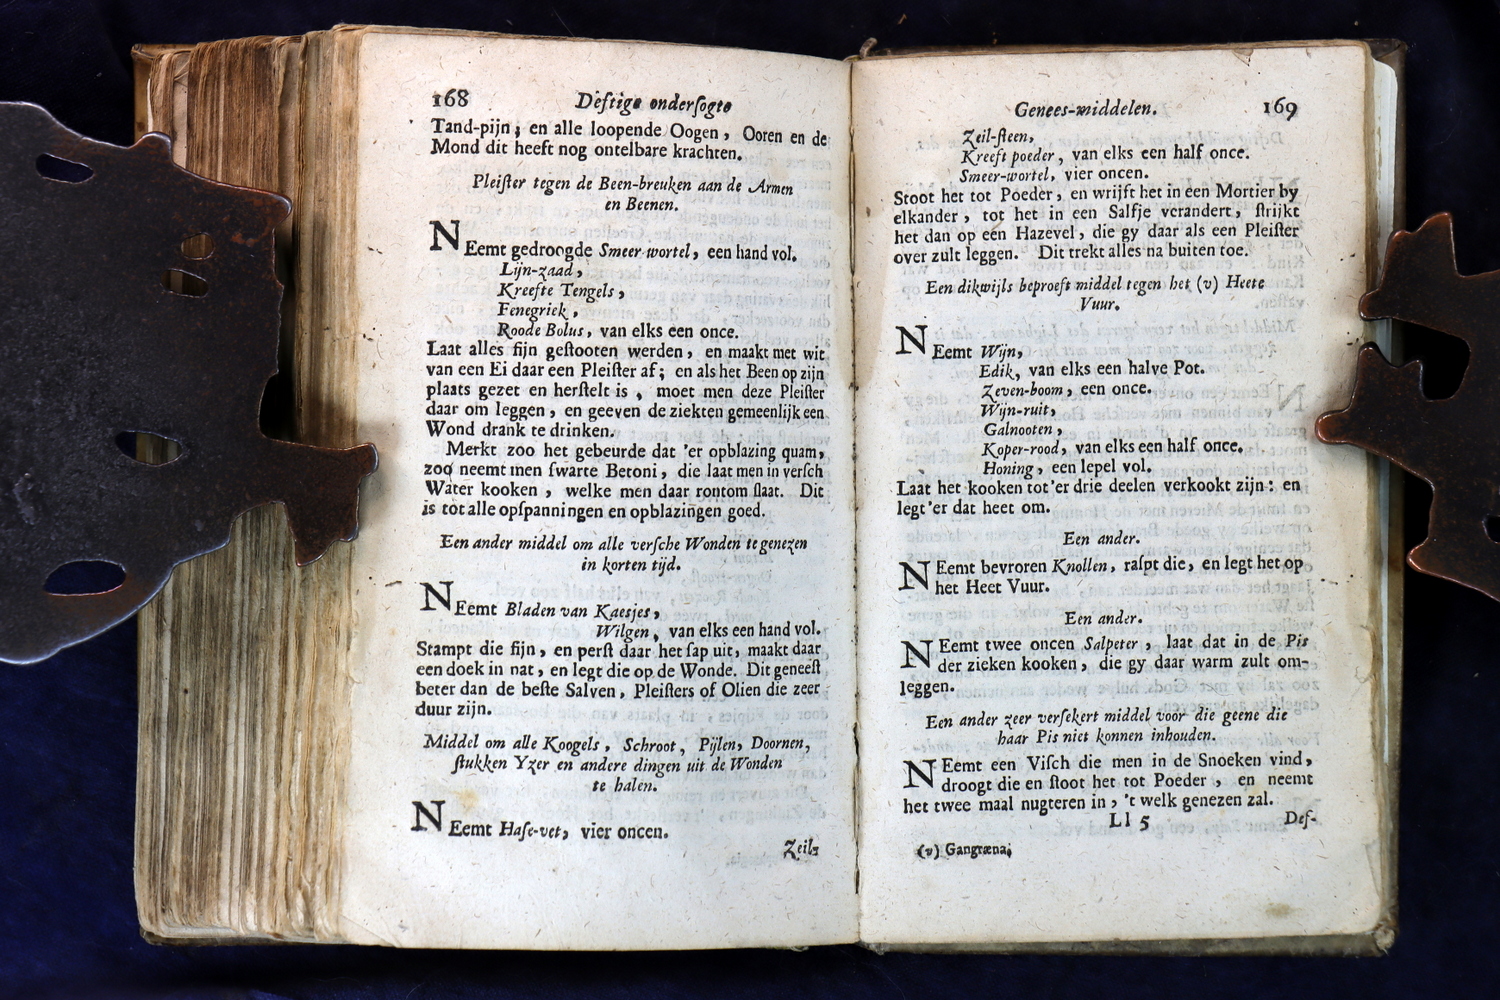 168 Deftige ondersogte
Tand-pijn; en alle loopende Oogen, Ooren en de
Mond dit heeft nog ontelbare krachten.
Pleister tegen de Been-breuken aan de Armen
en Beenen.
NEemt gedroogde Smeer-wortel, een hand vol.
Lijn-zaad,
Kreefte Tengels,
Fenegriek,
Roode Bolus, van elks een once.
Laat alles fijn gestooten werden, en maakt met wit
van een Ei daar een Pleister af; en als het Been op zijn
plaats gezet en herstelt is, moet men deze Pleister
daar om leggen, en geeven de ziekten gemeenlijk een
Wond drank te drinken.
Merkt zoo het gebeurde dat 'er opblazing quam,
zoo neemt men swarte Betoni, die laat men in versch
Water kooken, welke men daar rontom slaat. Dit
is tot alle opspanningen en opblazingen goed.
Een ander middel om alle versche Wonden te genezen
in korten tijd.
NEemt Bladen van Kaesjes,
Wilgen, van elks een hand vol.
Stampt die fijn, en perst daar het sap uit, maakt daar
een doek in nat, en legt die op de Wonde. Dit geneest
beter dan de beste Salven, Pleisters of Olien die zeer
duur zijn.
Middel om alle Koogels, Schroot, Pijlen, Doornen,
stukken Yzer en andere dingen uit de Wonden
te halen.
NEemt Hase-vet, vier oncen.
Zeil-
Genees-middelen. 169
Zeil-steen,
Kreeft poeder, van elks een half once.
Smeer-wortel, vier oncen.
Stoot het tot Poeder, en wrijft het in een Mortier by
elkander, tot het in een Salfje verandert, strijkt
het dan op een Hazevel, die gy daar als een Pleister
over zult leggen. Dit trekt alles na buiten toe.
Een dikwijls beproeft middel tegen het (v) Heete
Vuur.
NEemt Wijn,
Edik, van elks een halve Pot.
Zeven-boom, een once.
Wijn-ruit,
Galnooten,
Koper-rood, van elks een half once.
Honing, een lepel vol.
Laat het kooken tot 'er drie deelen verkookt zijn: en
legt 'er dat heet om.
Een ander.
NEemt bevroren Knollen, raspt die, en legt het op
het Heet Vuur.
Een ander.
NEemt twee oncen Salpeter, laat dat in de Pis
der zieken kooken, die gy daar warm zult om-
leggen.
Een ander zeer versekert middel voor die geene die
haar Pis niet konnen inhouden.
NEemt een Visch die men in de Snoeken vind,
droogt die en stoot het tot Poeder, en neemt
het twee maal nugteren in, 't welk genezen zal.
Ll 5 Def-
(v) Gangræna.